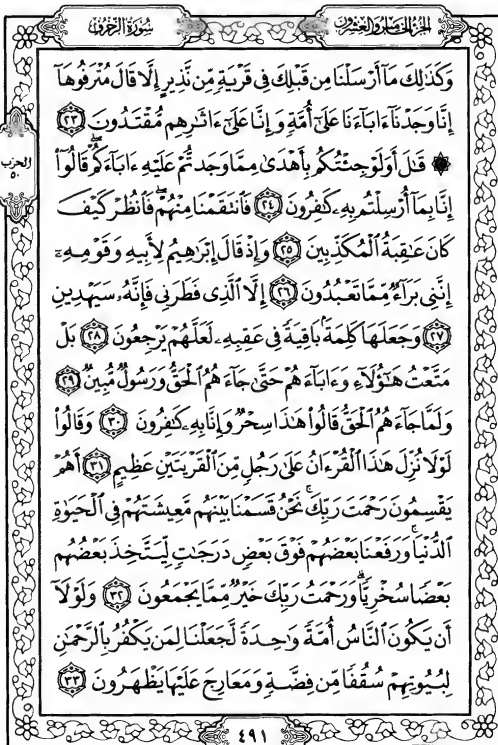 الجزء الخامس والعشرون
سورة الزخرف
وَكَذَٰلِكَ مَآ أَرْسَلْنَا مِن قَبْلِكَ فِى قَرْيَةٍ مِّن نَّذِيرٍ إِلَّا قَالَ مُتْرَفُوهَآ
إِنَّا وَجَدْنَآ ءَابَآءَنَا عَلَىٰٓ أُمَّةٍ وَإِنَّا عَلَىٰٓ ءَاثَـٰرِهِم مُّقْتَدُونَ ٢٣
۞ قَـٰلَ أَوَلَوْ جِئْتُكُم بِأَهْدَىٰ مِمَّا وَجَدتُّمْ عَلَيْهِ ءَابَآءَكُمْ ۖ قَالُوٓا۟
إِنَّا بِمَآ أُرْسِلْتُم بِهِۦ كَـٰفِرُونَ ٢٤ فَٱنتَقَمْنَا مِنْهُمْ ۖ فَٱنظُرْ كَيْفَ
كَانَ عَـٰقِبَةُ ٱلْمُكَذِّبِينَ ٢٥ وَإِذْ قَالَ إِبْرَٰهِيمُ لِأَبِيهِ وَقَوْمِهِۦٓ
إِنَّنِى بَرَآءٌ مِّمَّا تَعْبُدُونَ ٢٦ إِلَّا ٱلَّذِى فَطَرَنِى فَإِنَّهُۥ سَيَهْدِينِ
٢٧ وَجَعَلَهَا كَلِمَةًۢ بَاقِيَةً فِى عَقِبِهِۦ لَعَلَّهُمْ يَرْجِعُونَ ٢٨ بَلْ
مَتَّعْتُ هَـٰٓؤُلَآءِ وَءَابَآءَهُمْ حَتَّىٰ جَآءَهُمُ ٱلْحَقُّ وَرَسُولٌ مُّبِينٌ ٢٩
وَلَمَّا جَآءَهُمُ ٱلْحَقُّ قَالُوا۟ هَـٰذَا سِحْرٌ وَإِنَّا بِهِۦ كَـٰفِرُونَ ٣٠ وَقَالُوا۟
لَوْلَا نُزِّلَ هَـٰذَا ٱلْقُرْءَانُ عَلَىٰ رَجُلٍ مِّنَ ٱلْقَرْيَتَيْنِ عَظِيمٍ ٣١ أَهُمْ
يَقْسِمُونَ رَحْمَتَ رَبِّكَ ۚ نَحْنُ قَسَمْنَا بَيْنَهُم مَّعِيشَتَهُمْ فِى ٱلْحَيَوٰةِ
ٱلدُّنْيَا ۚ وَرَفَعْنَا بَعْضَهُمْ فَوْقَ بَعْضٍ دَرَجَـٰتٍ لِّيَتَّخِذَ بَعْضُهُم
بَعْضًا سُخْرِيًّا ۗ وَرَحْمَتُ رَبِّكَ خَيْرٌ مِّمَّا يَجْمَعُونَ ٣٢ وَلَوْلَآ
أَن يَكُونَ ٱلنَّاسُ أُمَّةً وَٰحِدَةً لَّجَعَلْنَا لِمَن يَكْفُرُ بِٱلرَّحْمَـٰنِ
لِبُيُوتِهِمْ سُقُفًا مِّن فِضَّةٍ وَمَعَارِجَ عَلَيْهَا يَظْهَرُونَ ٣٣
الحزب
٥٠
٤٩١